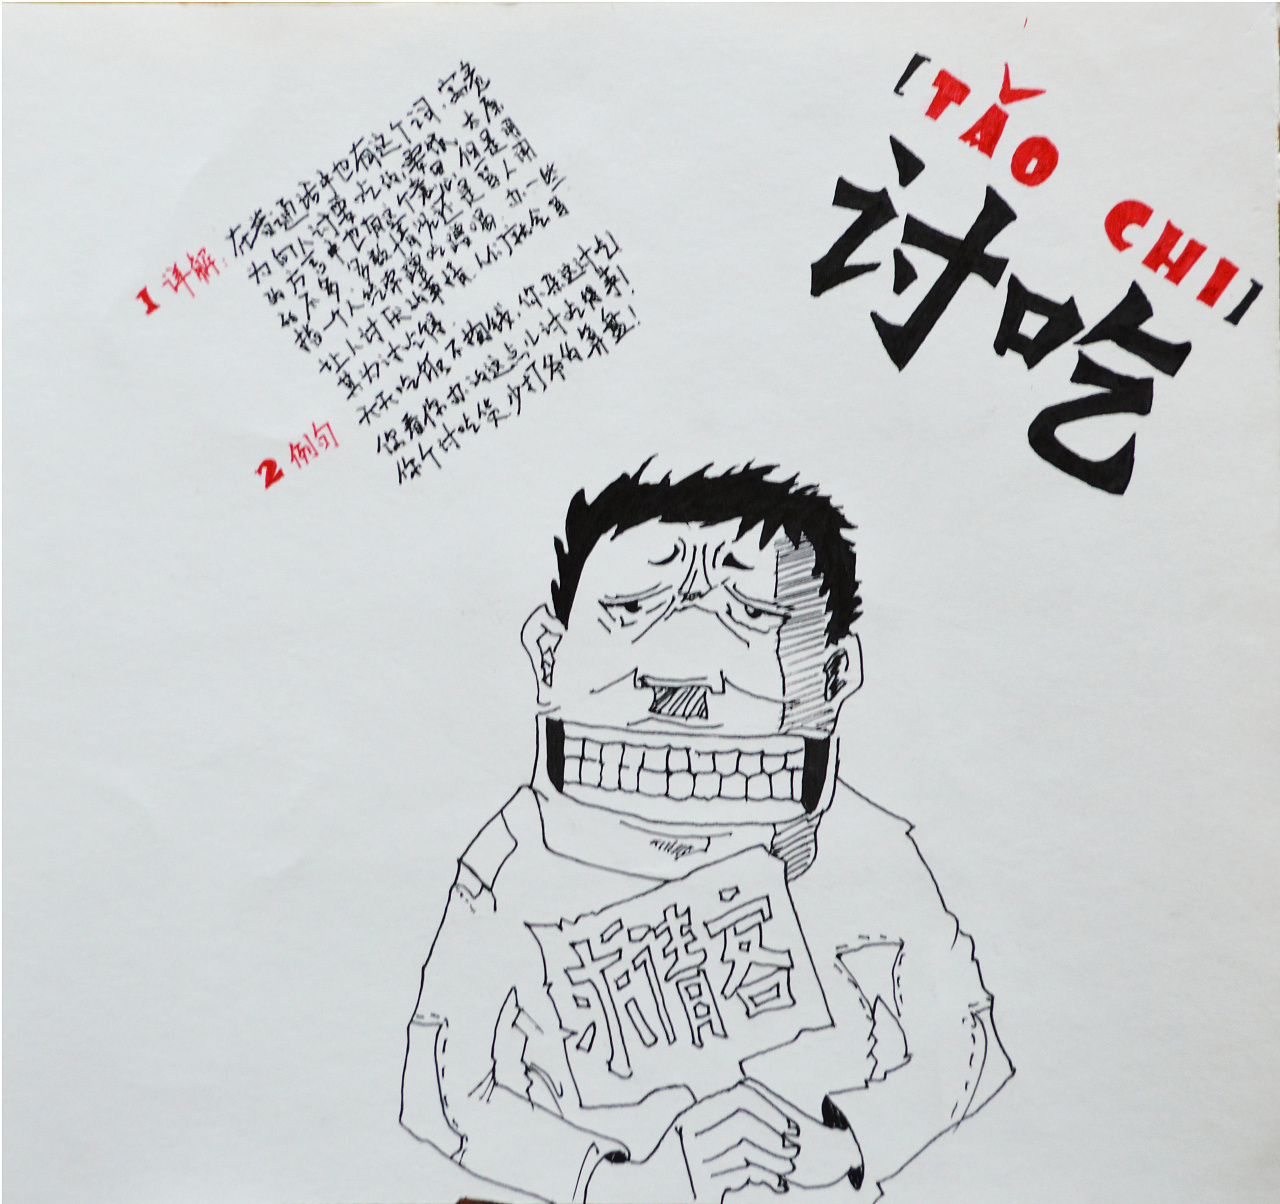 [TǍO CHI]
讨吃
1 详解:
在普通话中也有这个词,字意
为向人讨要吃的,要饭,太原
的方言中也有这个意思,但是用
的不多,多数情况还是骂人用
指一个人经常蹭吃蹭喝,办一些
让人讨厌的事情,人们就会骂
其为讨吃
2 例句
天天吃饭不掏钱,你真这讨吃!
您看你办的这点儿讨吃事!
你个讨吃货,少打爷的算盘!
求请客